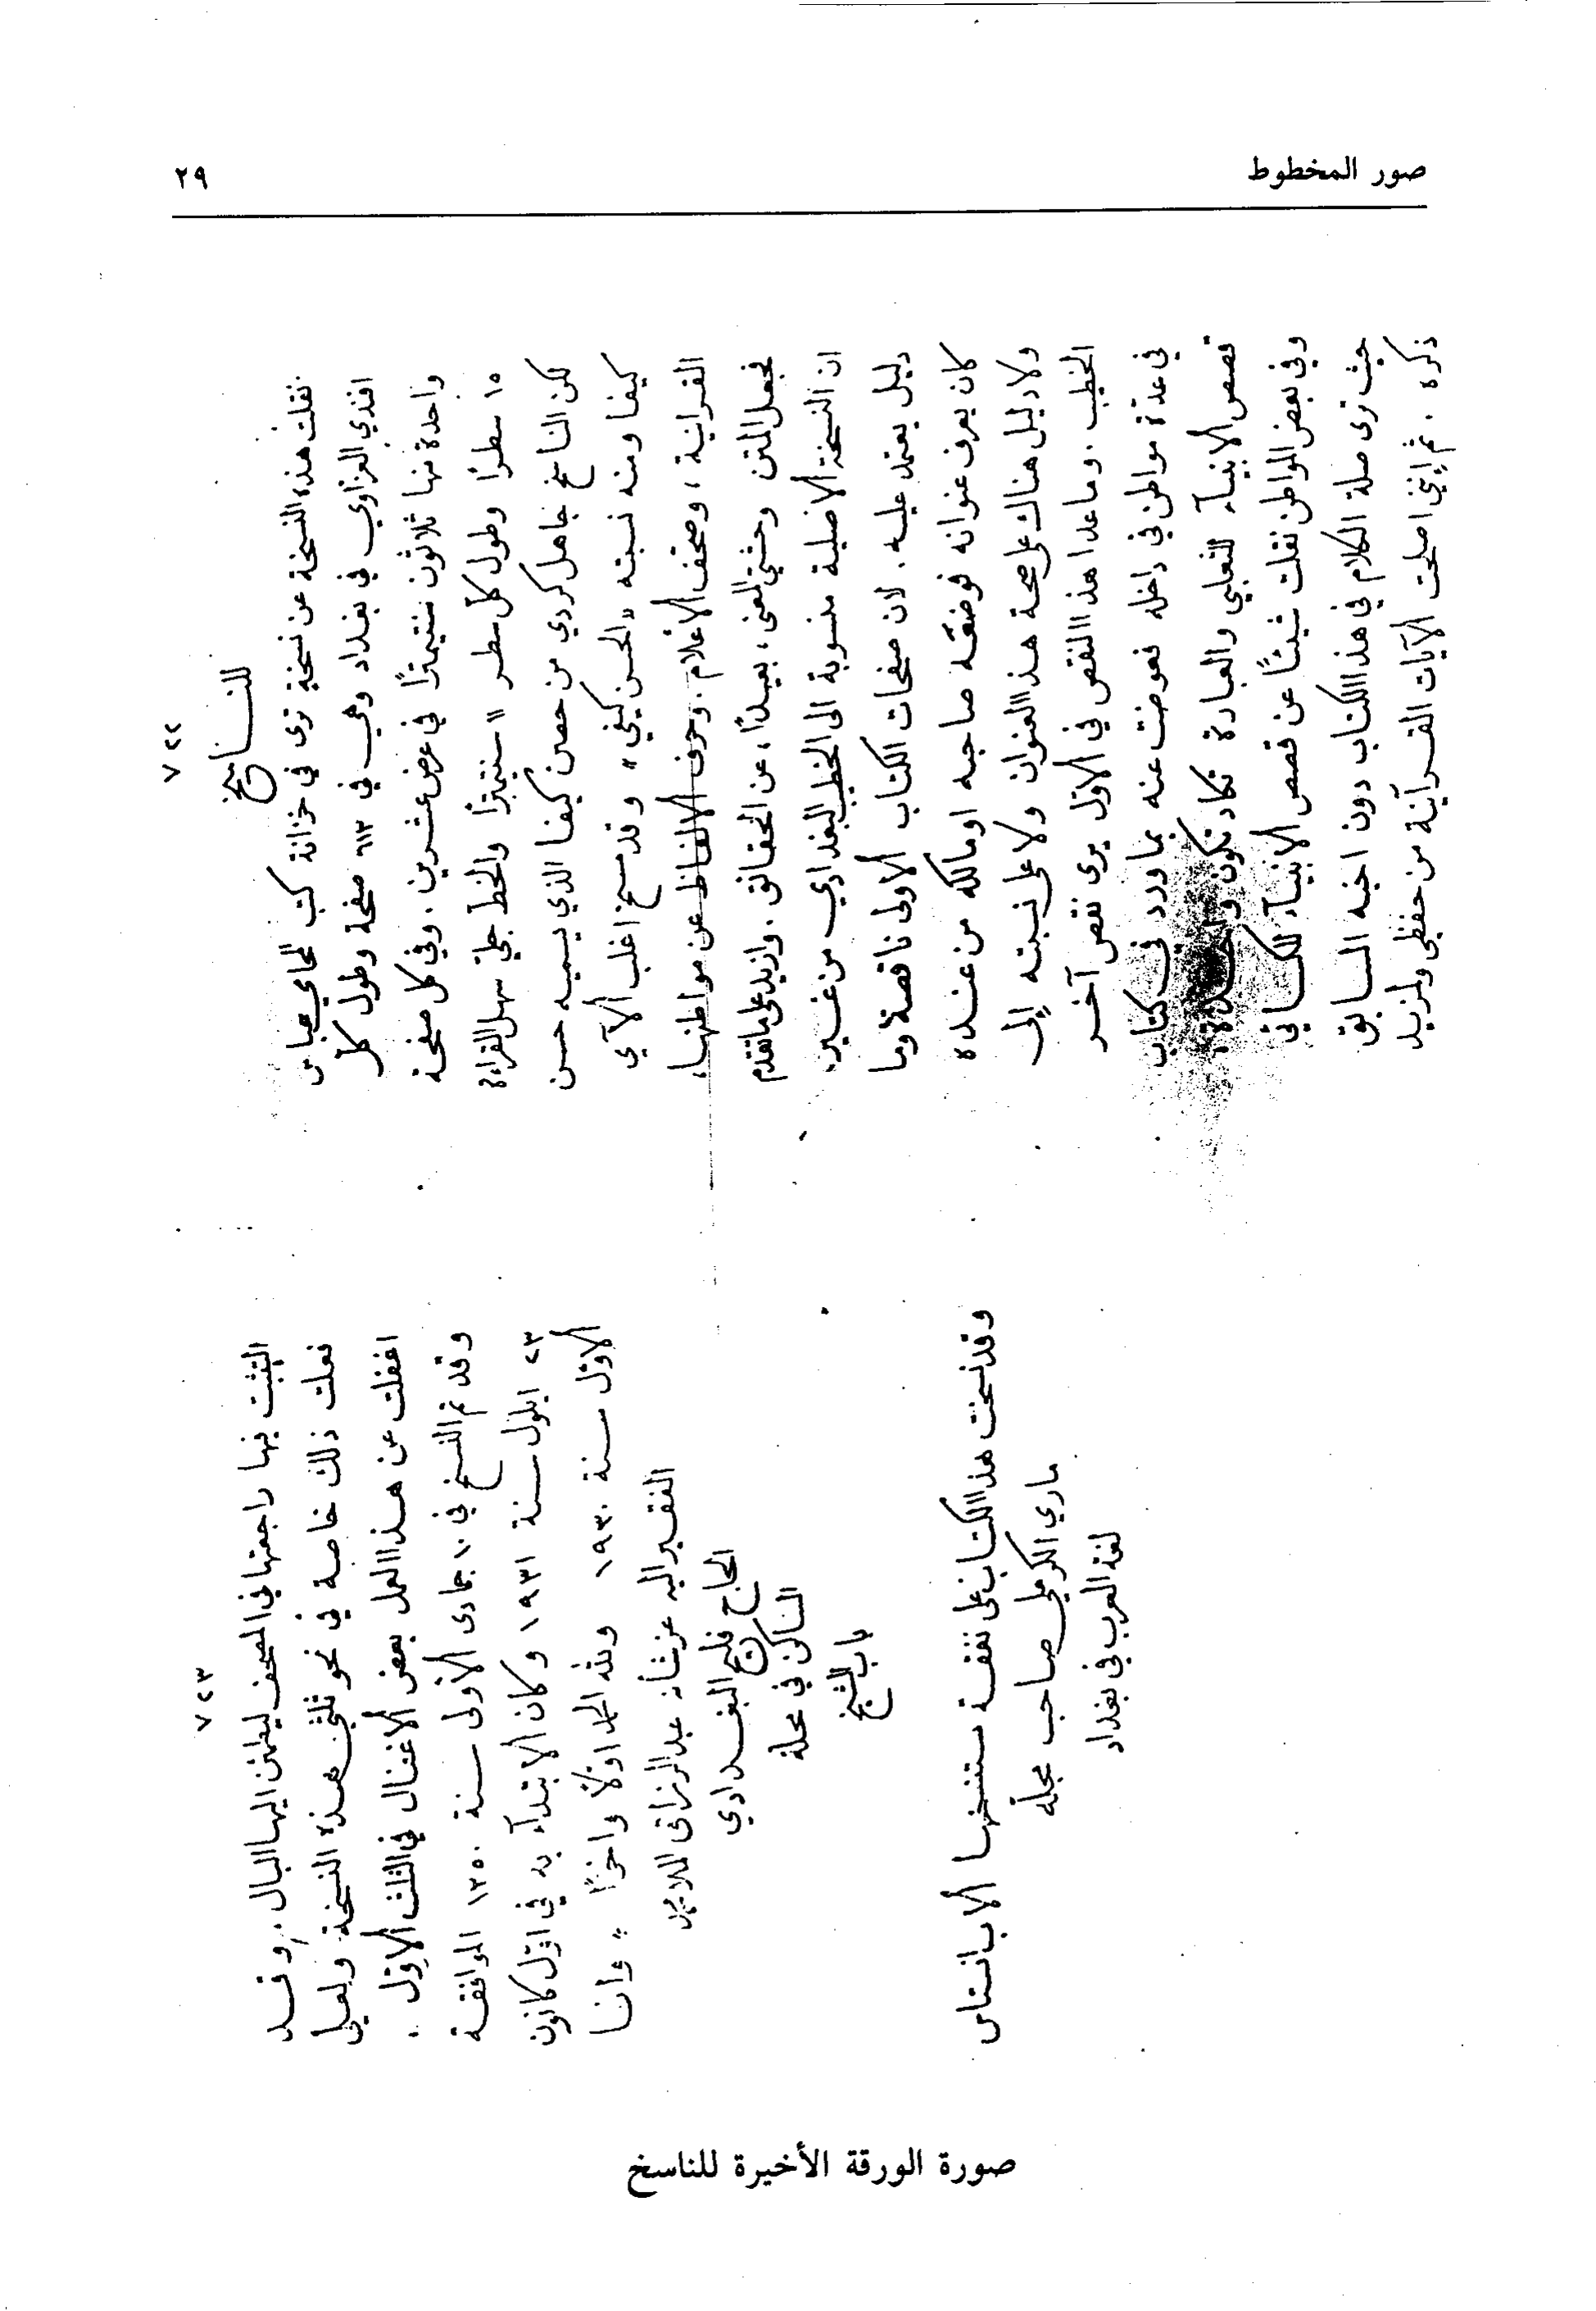 صور المخطوط
٢٩
٧٢٢
للناسخ
نقلت هذه النسخة عن نسخة ترى في خزانة كتب المحامي عباس
افندي العزاوي في بغداد وهي في ٦١٣ صفحة وطول كل
واحدة منها ثلاثون سنتيمترًا في عرض عشرين. وفي كل صفحة
١٥ سطرًا وطول كل سطر ١١ سنتيمترًا والخط جلي سهل القراءة
لكن الناسخ جاهل كردي من حصن كيفا الذي يسميه حسن
كيفا ومنه نسبته «الحسن كيفي» وقد مسخ اغلب الآي
القرانية، وصحّف الأعلام. وحرف الالفاظ عن مواطنها،
فجعل المتن وحشي المعنى، بعيدًا، عن الحقائق. وازيد على ما تقدم
ان النسخة الاصلية منسوبة الى الخطيب البغدادي من غير
دليل يعتمد عليه. لان صفحات الكتاب الاولى ناقصة وما
كان يعرف عنوانه فوضعه صاحبه او مالكه من عنده
ولا دليل هناك على صحة هذا العنوان ولا على نسبته إلى
الخطيب. وما عدا هذا النقص في الاول يرى نقص آخر
في عدّة مواطن في داخله فعوضت عنه بما ورد في كتاب
قصص الانبيآء للثعلبي والعبارة تكاد تكون واحدة،
وفي بعض المواطن نقلت شيئًا عن قصص الانبيآء للكسائي
حيث ترى صلة الكلام في هذا الكتاب دون اخيه السابق
ذكره. ثم إنني اصلحت الآيات القرآنية من حفظي ولمزيد
٧٢٣
التثبت فيها راجعتها في المصحف ليطمئن اليها البال. وقد
فعلت ذلك خاصة في نحو ثلثي هذه النسخة ولعلي
اغفلت عن هذا العمل بعض الاغفال في الثلث الأول.
وقد تم النسخ في ١٠ جمادى الأولى سنة ١٣٥٠ الموافقة
٢٣ ايلول سنة ١٩٣١ وكان الابتدآء به في اوّل كانون
الاوّل سنة ١٩٣٠ ولله الحمد اولًا واخرًا. وانا
الفقير اليه عز شأنه عبد الرزاق الملا محمد
الحاج فليح البغدادي
الساكن في محلة
باب الشيخ
وقد نسخت هذا الكتاب على نفقة مستنسخها الاب انستاس
ماري الكرملي صاحب مجلة
لغة العرب في بغداد
صورة الورقة الأخيرة للناسخ